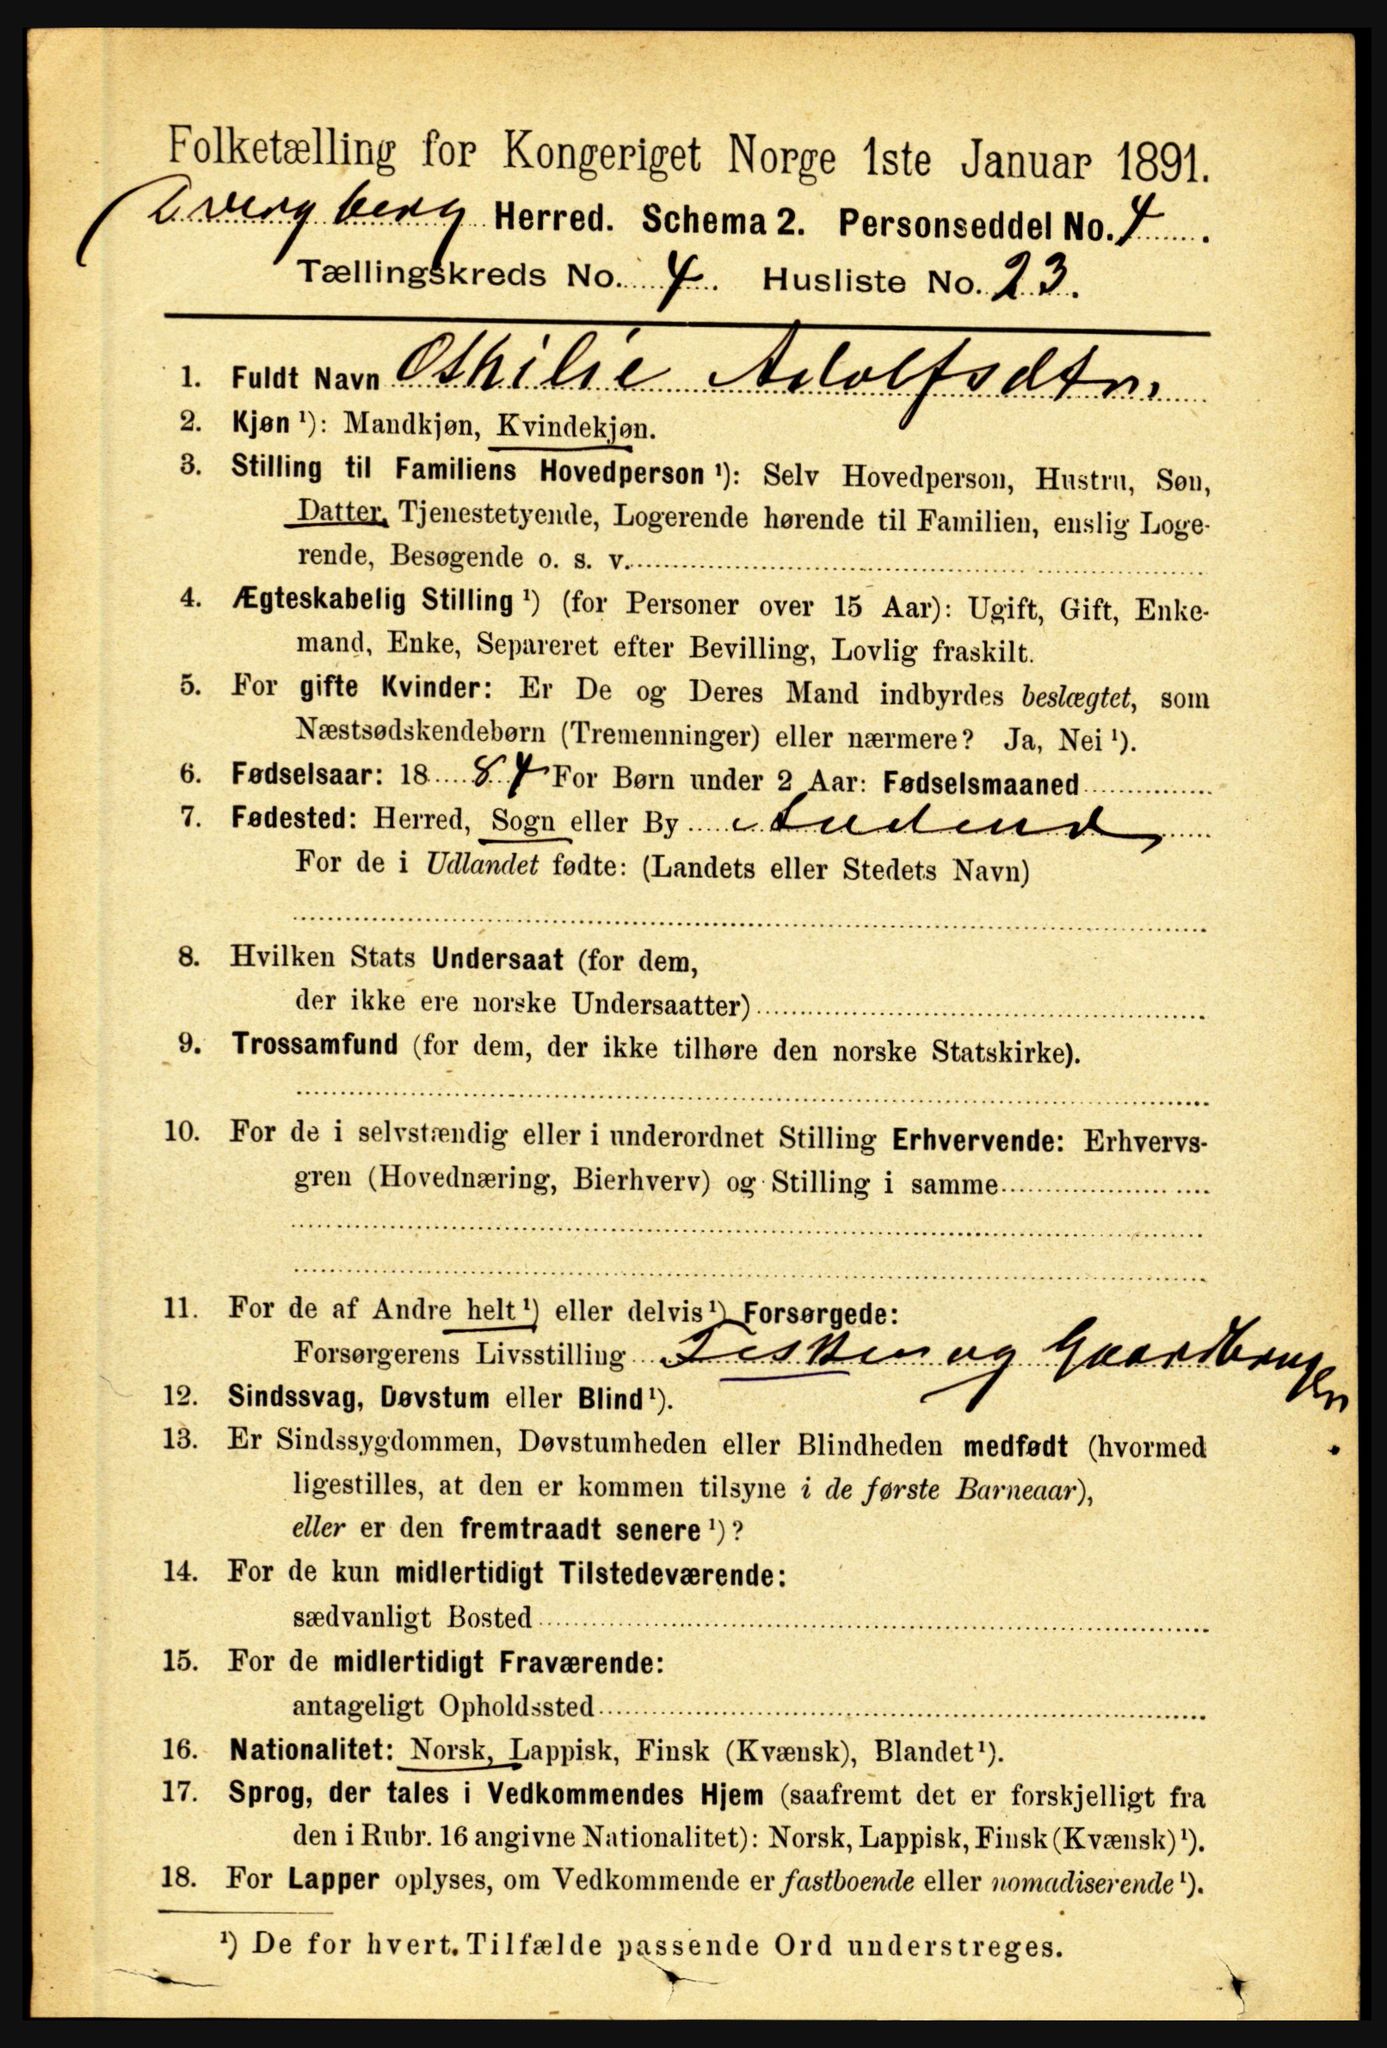 Folketælling for Kongeriget Norge 1ste Januar 1891.
Dvergberg Herred. Schema 2. Personseddel No. 4.
Tællingskreds No. 4. Husliste No. 23.
1. Fuldt Navn Othilie Adolfsdtr.
2. Kjøn ¹): Mandkjøn, Kvindekjøn.
3. Stilling til Familiens Hovedperson ¹): Selv Hovedperson, Hustru, Søn,
Datter, Tjenestetyende, Logerende hørende til Familien, enslig Loge-
rende, Besøgende o. s. v.
4. Ægteskabelig Stilling ¹) (for Personer over 15 Aar): Ugift, Gift, Enke-
mand, Enke, Separeret efter Bevilling, Lovlig fraskilt.
5. For gifte Kvinder: Er De og Deres Mand indbyrdes beslægtet, som
Næstsødskendebørn (Tremenninger) eller nærmere? Ja, Nei ¹).
6. Fødselsaar: 1884 For Børn under 2 Aar: Fødselsmaaned
7. Fødested: Herred, Sogn eller By
For de i Udlandet fødte: (Landets eller Stedets Navn)
8. Hvilken Stats Undersaat (for dem,
der ikke ere norske Undersaatter)
9. Trossamfund (for dem, der ikke tilhøre den norske Statskirke).
10. For de i selvstændig eller i underordnet Stilling Erhvervende: Erhvervs-
gren (Hovednæring, Bierhverv) og Stilling i samme
11. For de af Andre helt ¹) eller delvis ¹) Forsørgede:
Forsørgerens Livsstilling Fisker og Gaardbruger.
12. Sindssvag, Døvstum eller Blind ¹).
13. Er Sindssygdommen, Døvstumheden eller Blindheden medfødt (hvormed
ligestilles, at den er kommen tilsyne i de første Barneaar),
eller er den fremtraadt senere ¹)?
14. For de kun midlertidigt Tilstedeværende:
sædvanligt Bosted
15. For de midlertidigt Fraværende:
antageligt Opholdssted
16. Nationalitet: Norsk, Lappisk, Finsk (Kvænsk), Blandet ¹).
17. Sprog, der tales i Vedkommendes Hjem (saafremt det er forskjelligt fra
den i Rubr. 16 angivne Nationalitet): Norsk, Lappisk, Finsk (Kvænsk) ¹).
18. For Lapper oplyses, om Vedkommende er fastboende eller nomadiserende ¹).
¹) De for hvert Tilfælde passende Ord understreges.